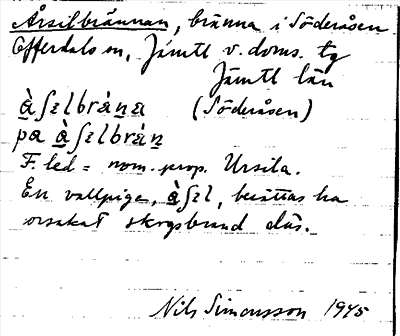 Årsilbrännan, bränna i Söderåsen
Offerdals sn, Jämtl v. doms. tg
Jämtl län
à̱ʃɛlbrá̱n̲a (Söderåsen)
pa à̱ʃɛlbrá̱n̲
F. led = nom. prop. Ursila.
En vallpiga, à̱ʃɛl, berättas ha
orsakat skogsbrand där.
Nils Simonsson 1945